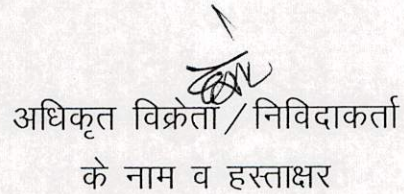 अधिकृत विक्रेता / निविदाकर्ता
के नाम व हस्ताक्षर